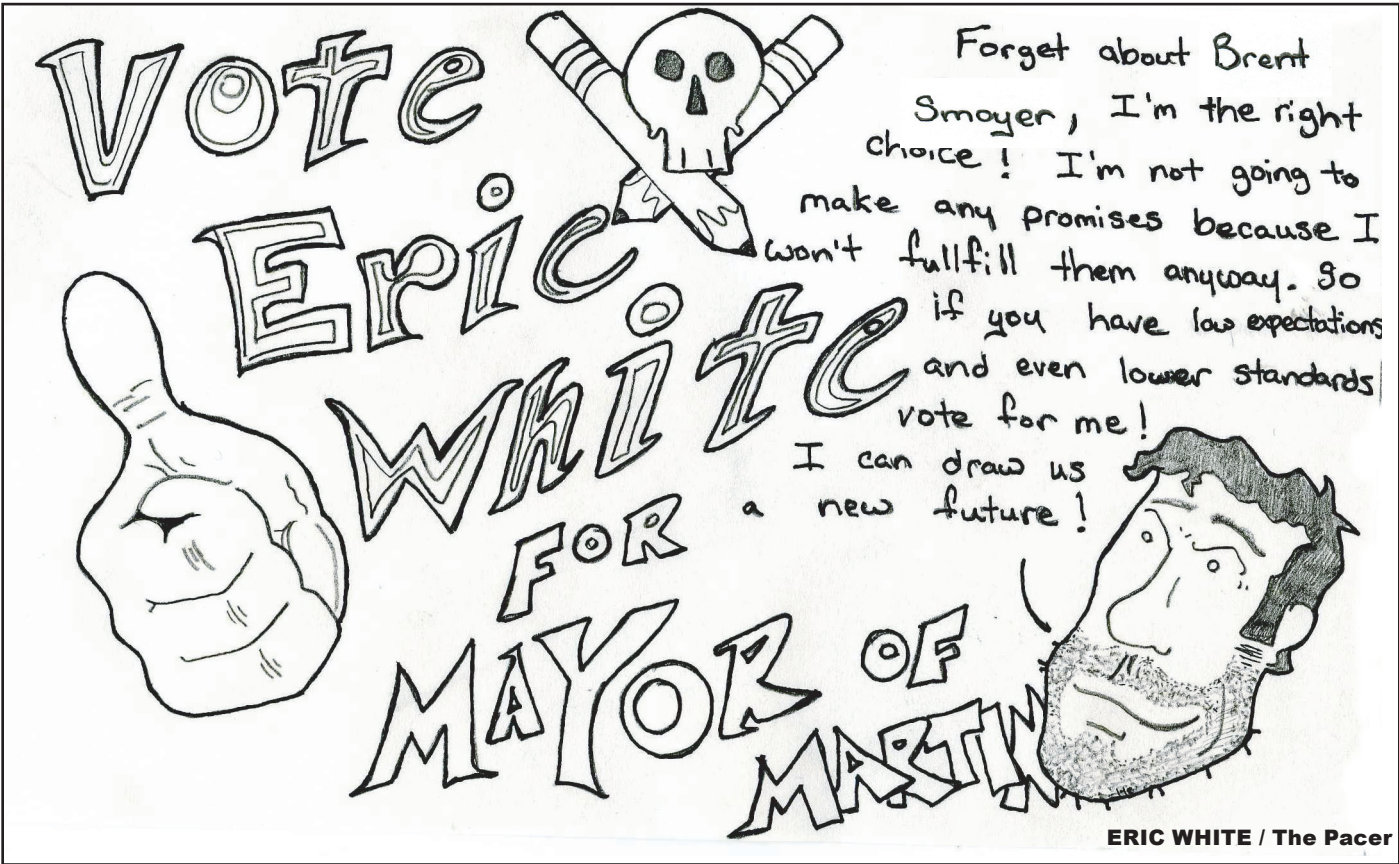 Vote
Eric
White
FOR
MAYOR OF
MARTIN
Forget about Brent
Smoyer, I'm the right
choice! I'm not going to
make any promises because I
won't fullfill them anyway. So
if you have low expectations
and even lower standards
vote for me!
I can draw us
a new future!
ERIC WHITE / The Pacer